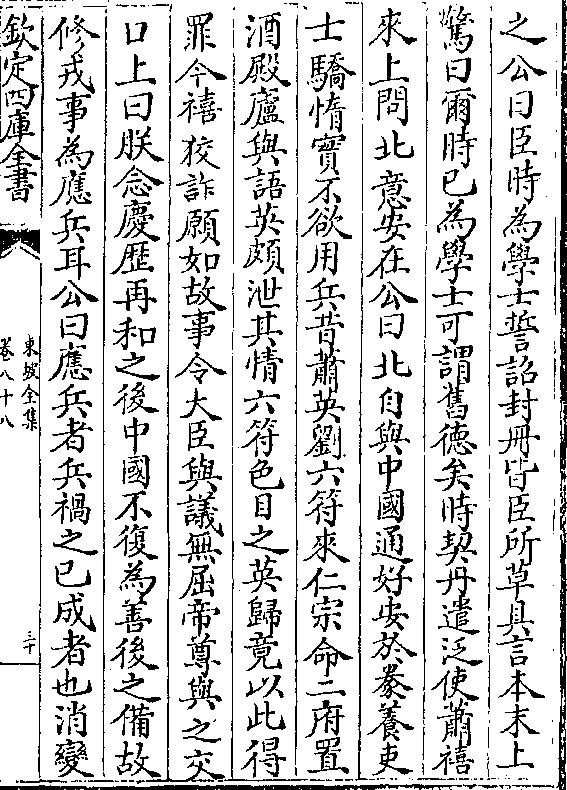 之公曰臣時為學士誓詔封冊皆臣所草具言本末上
驚曰爾時已為學士可謂舊德矣時契丹遣泛使蕭禧
來上問北意安在公曰北自與中國通好安於豢養吏
士驕惰實不欲用兵昔蕭英劉六符來仁宗命二府置
酒殿廬與語英頗泄其情六符色目之英歸竟以此得
罪今禧狡詐願如故事令大臣與議無屈帝尊與之交
口上曰朕念慶歷再和之後中國不復為善後之備故
修戎事為應兵耳公曰應兵者兵禍之已成者也消變
欽定四庫全書
東坡全集
卷八十八
三十